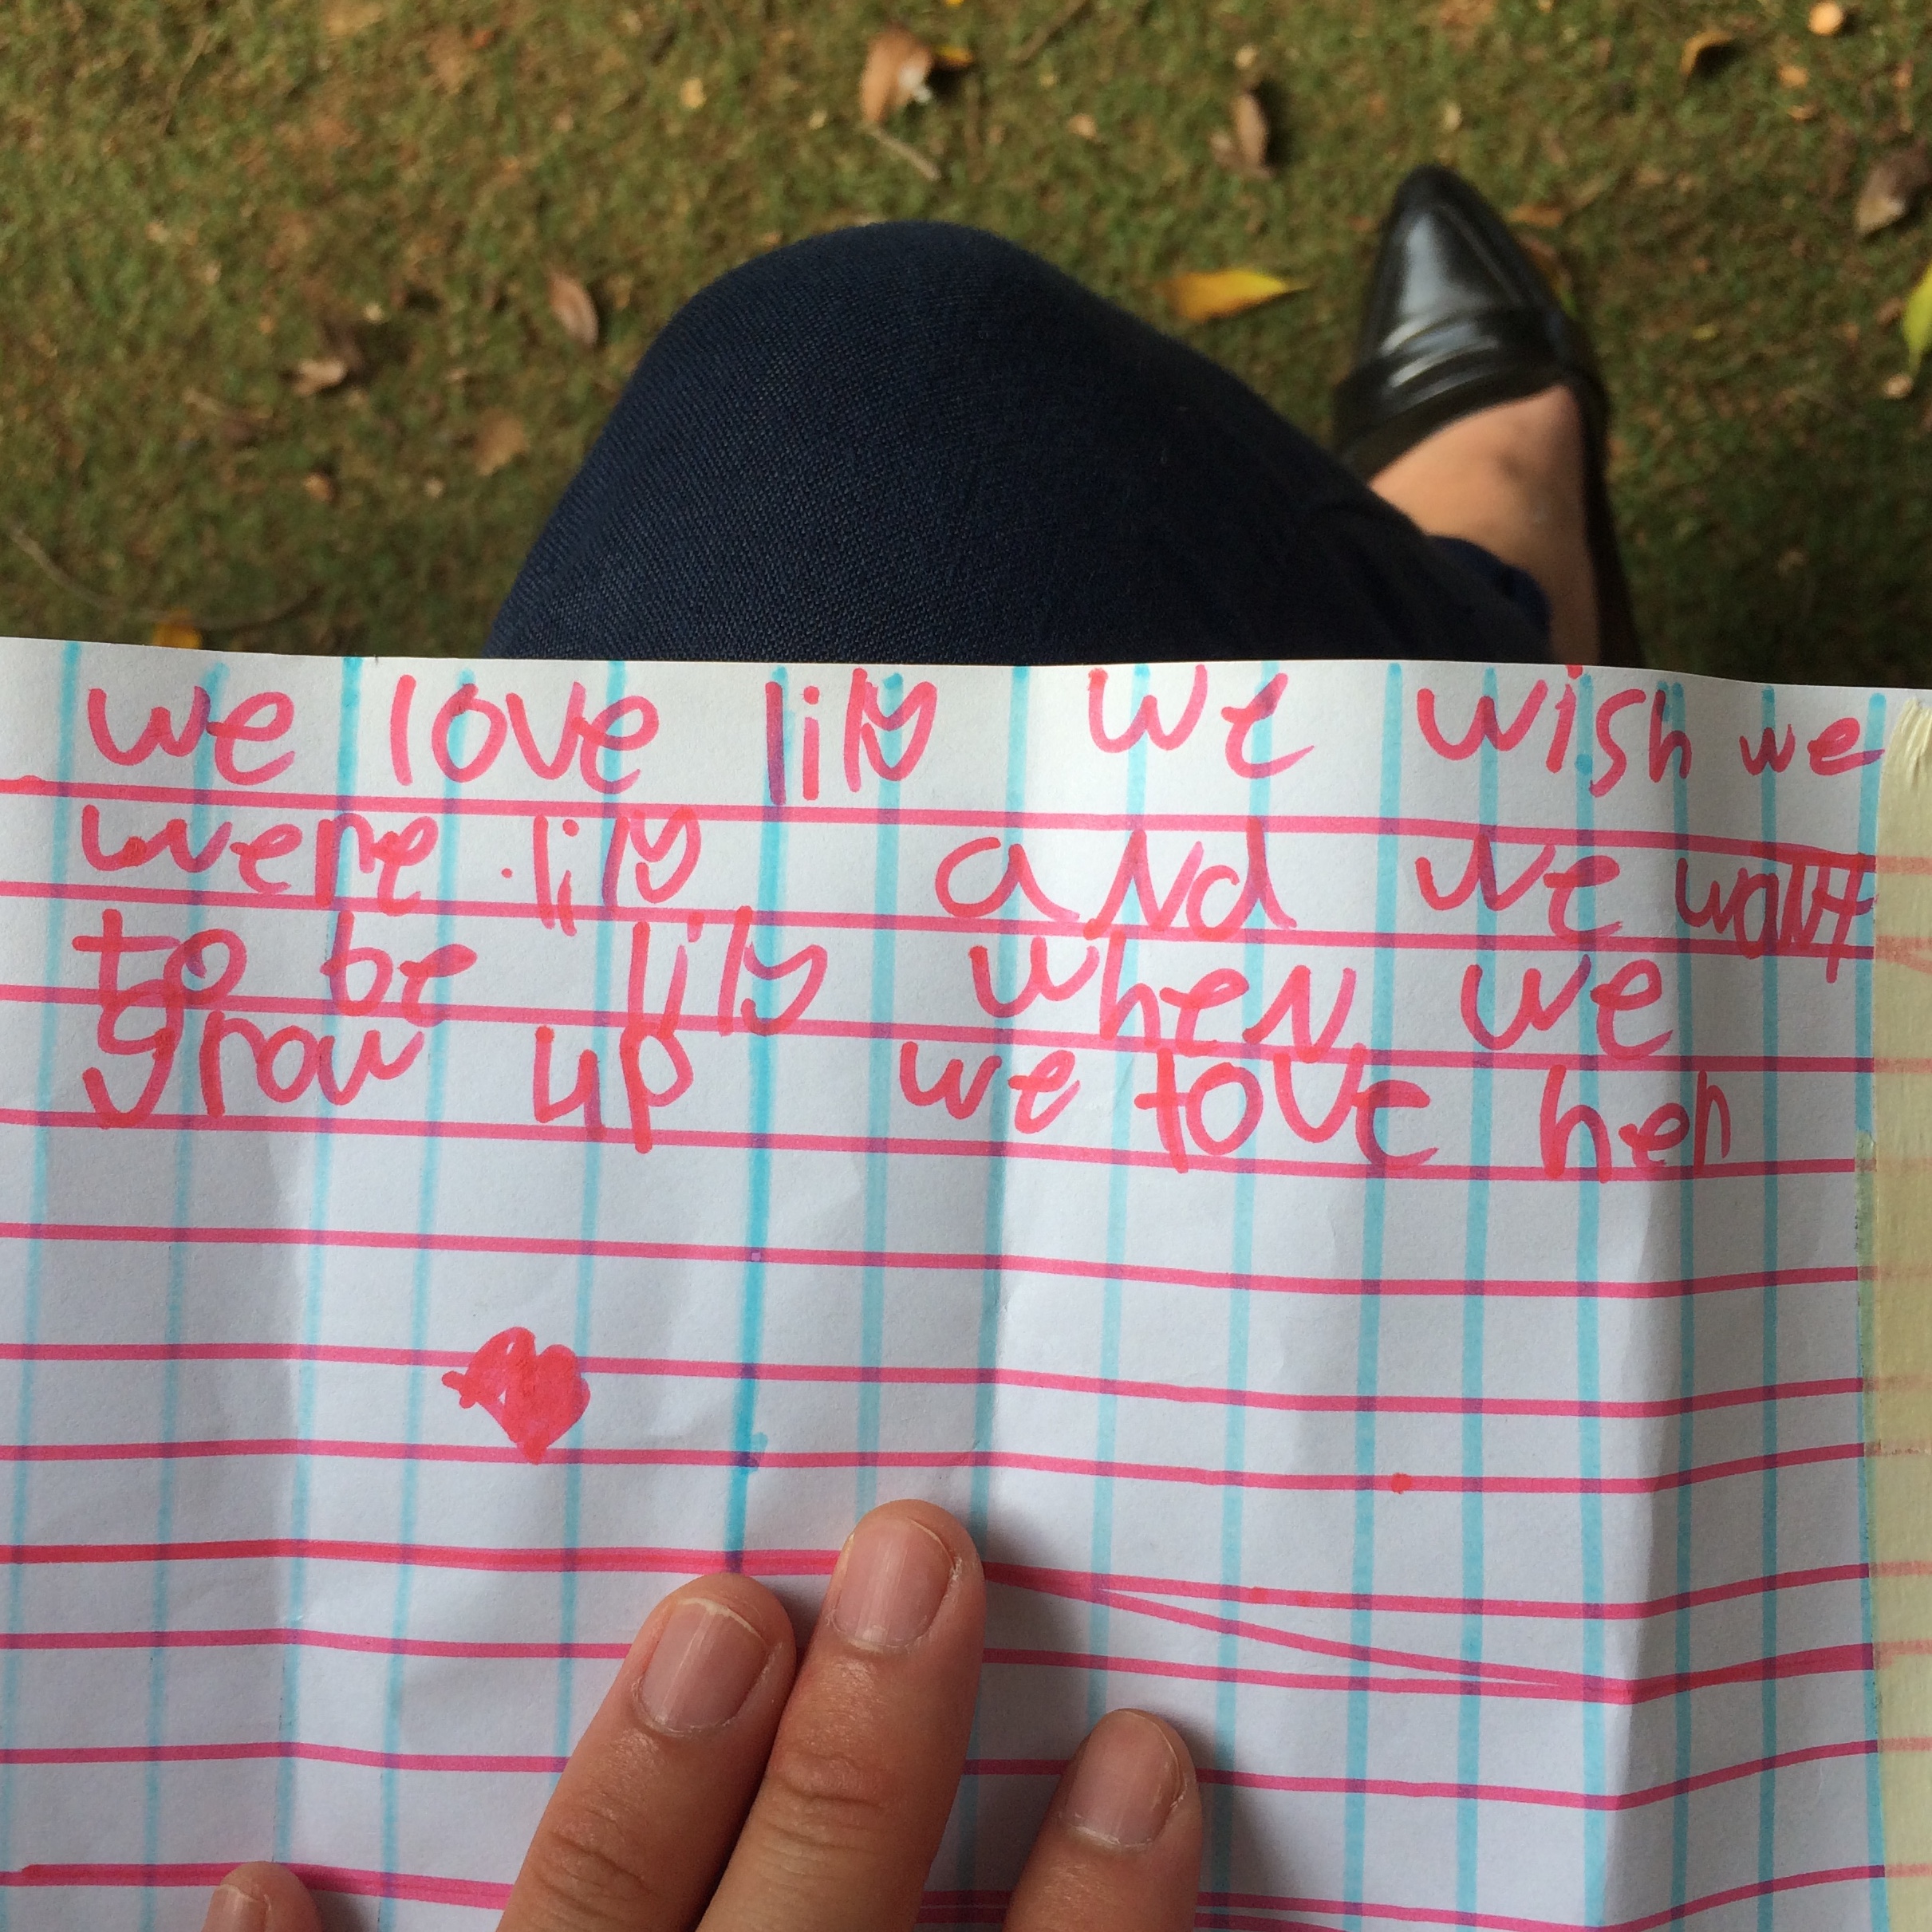 we love lily we wish we
were lily and we want
to be lily when we
grow up we love her